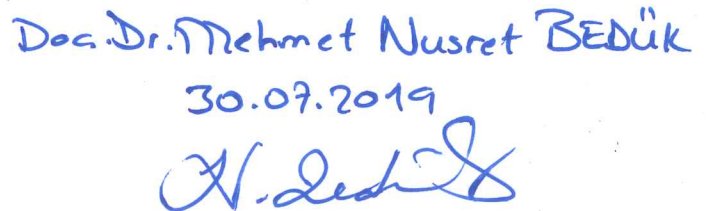 Doç.Dr.Mehmet Nusret BEDÜK
30.07.2019
N. Bedük